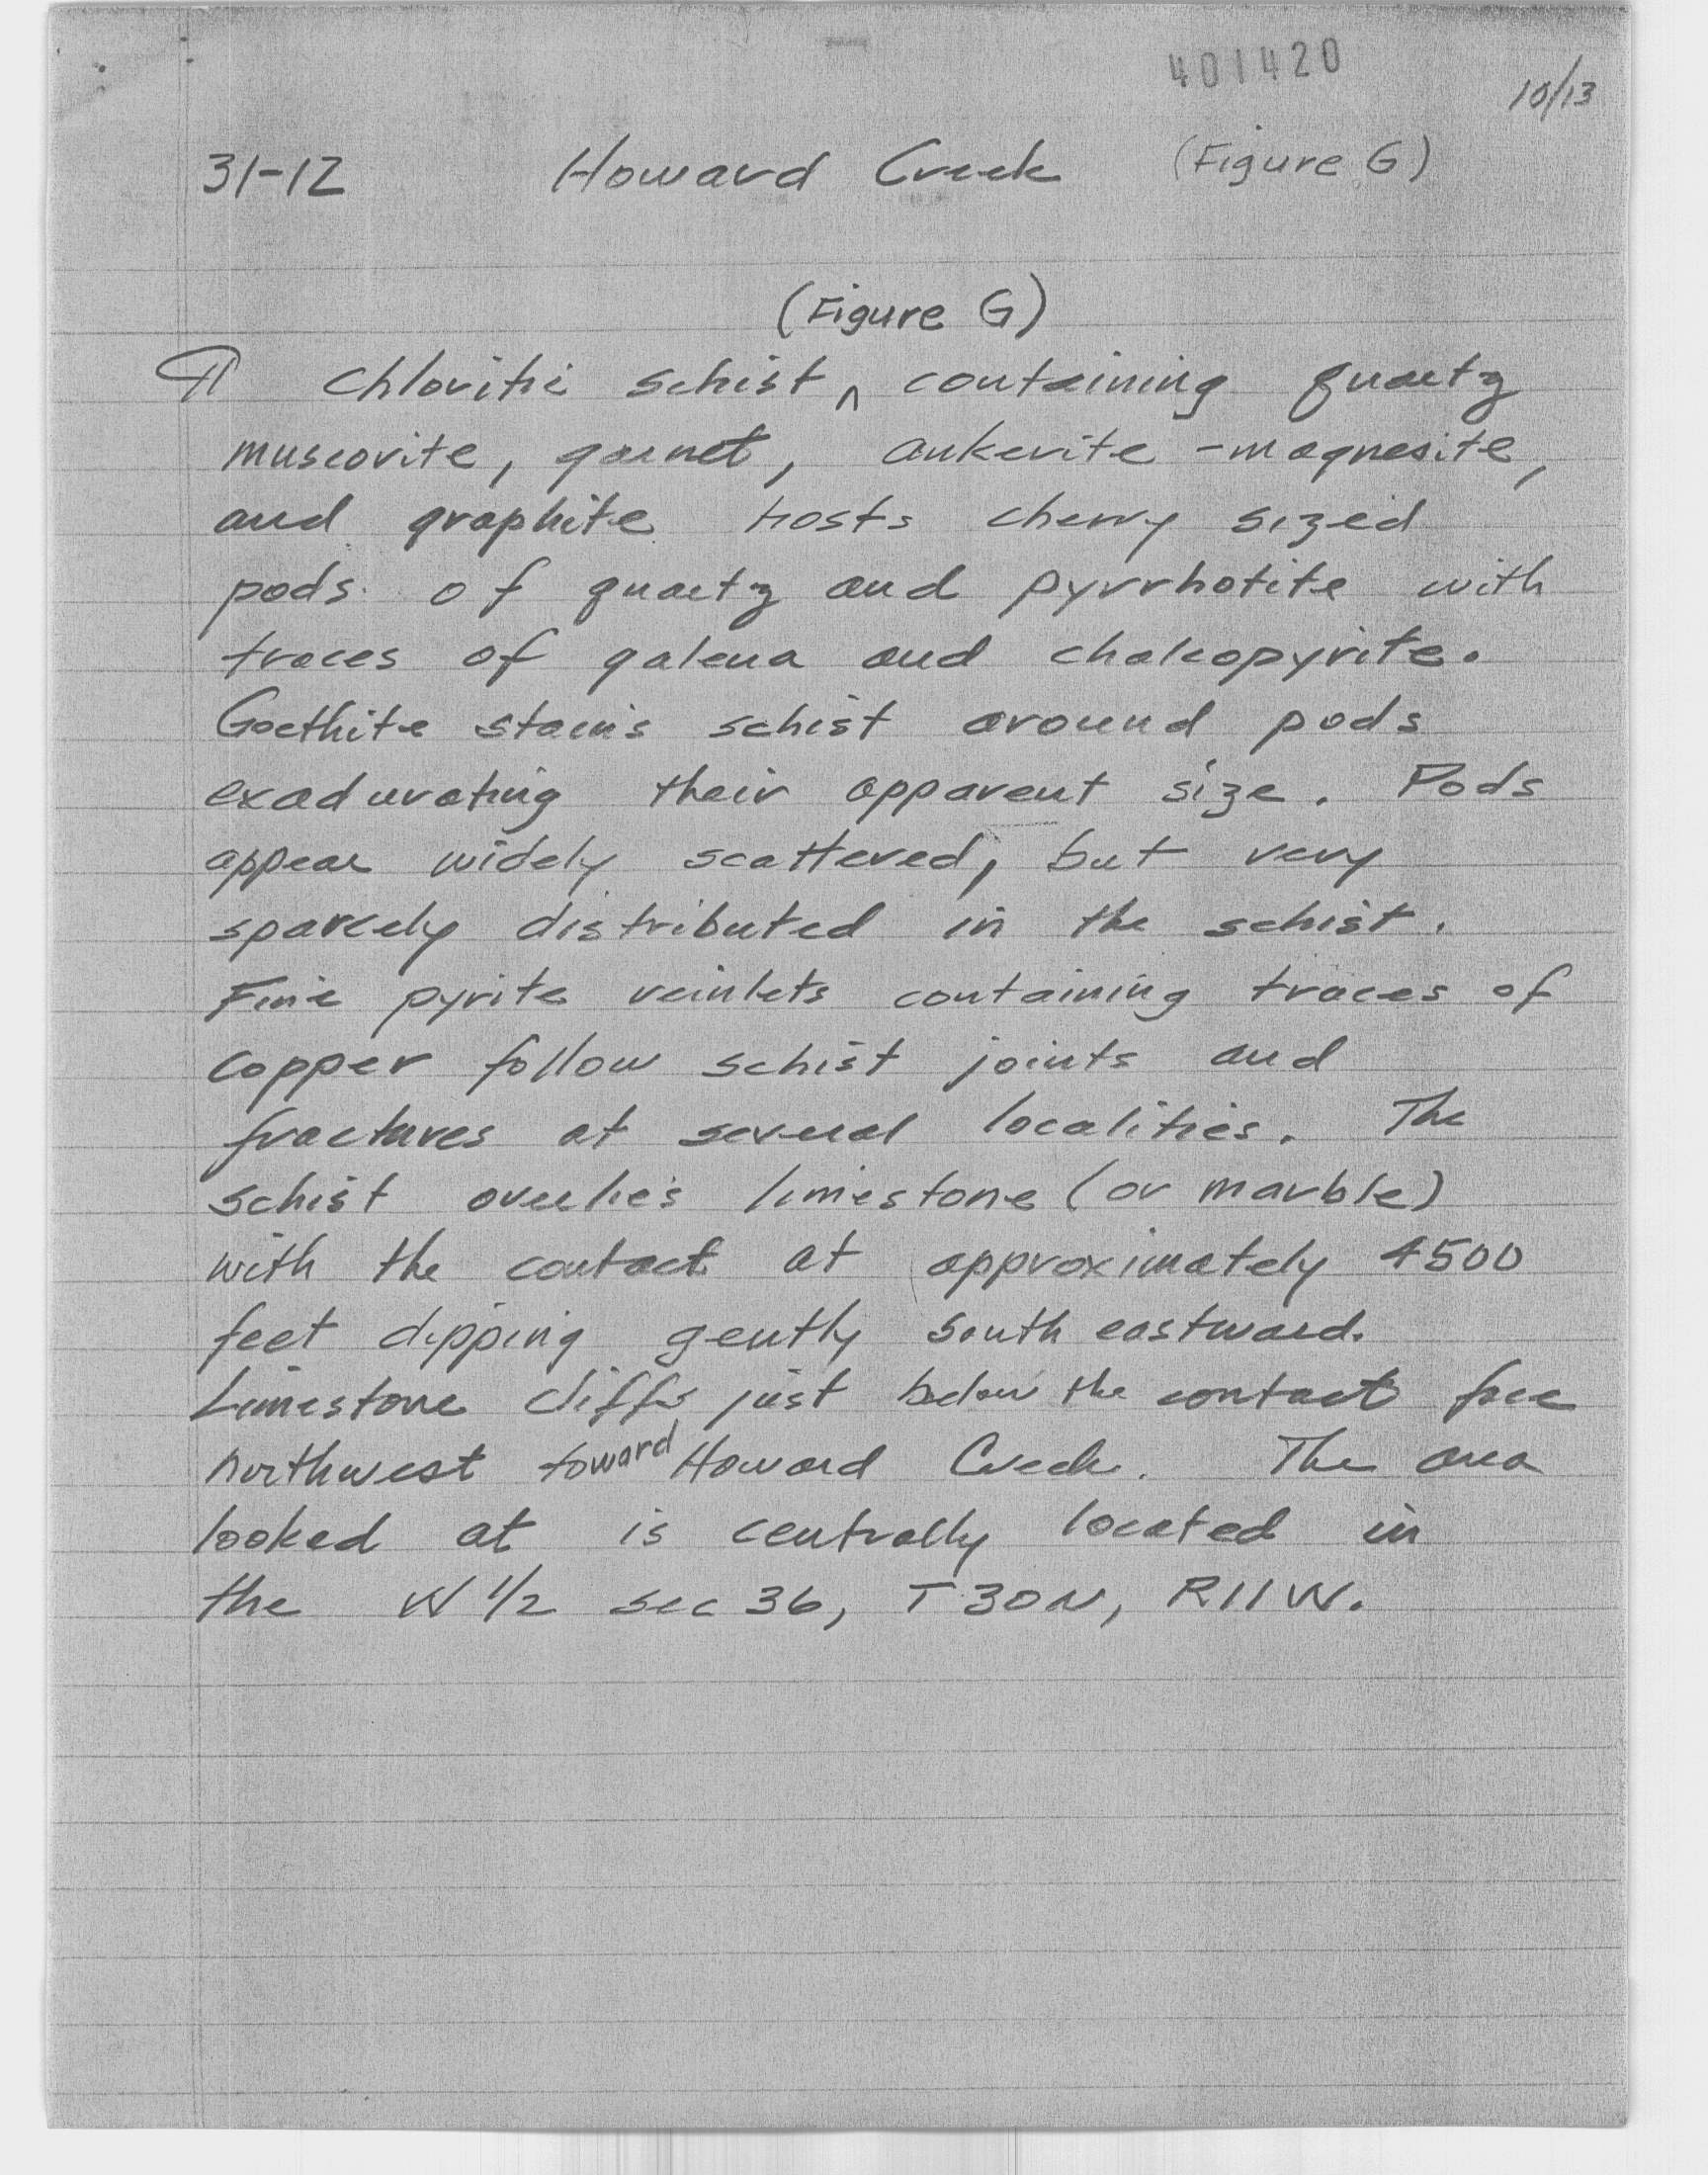 401420
10/13
31-12 Howard Creek (Figure G)
(Figure G)
¶ Chloritic schist ^ containing quartz
muscovite, garnet, ankerite - magnesite,
and graphite hosts cherry sized
pods of quartz and pyrrhotite with
traces of galena and chalcopyrite.
Goethite stains schist around pods
exadurating their apparent size. Pods
appear widely scattered, but very
sparcely distributed in the schist.
Fine pyrite veinlets containing traces of
copper follow schist joints and
fractures at several localities. The
schist overlies limestone (or marble)
with the contact at approximately 4500
feet dipping gently south eastward.
Limestone cliffs just below the contact face
northwest toward Howard Creek. The area
looked at is centrally located in
the W 1/2 sec 36, T 30N, R11W.